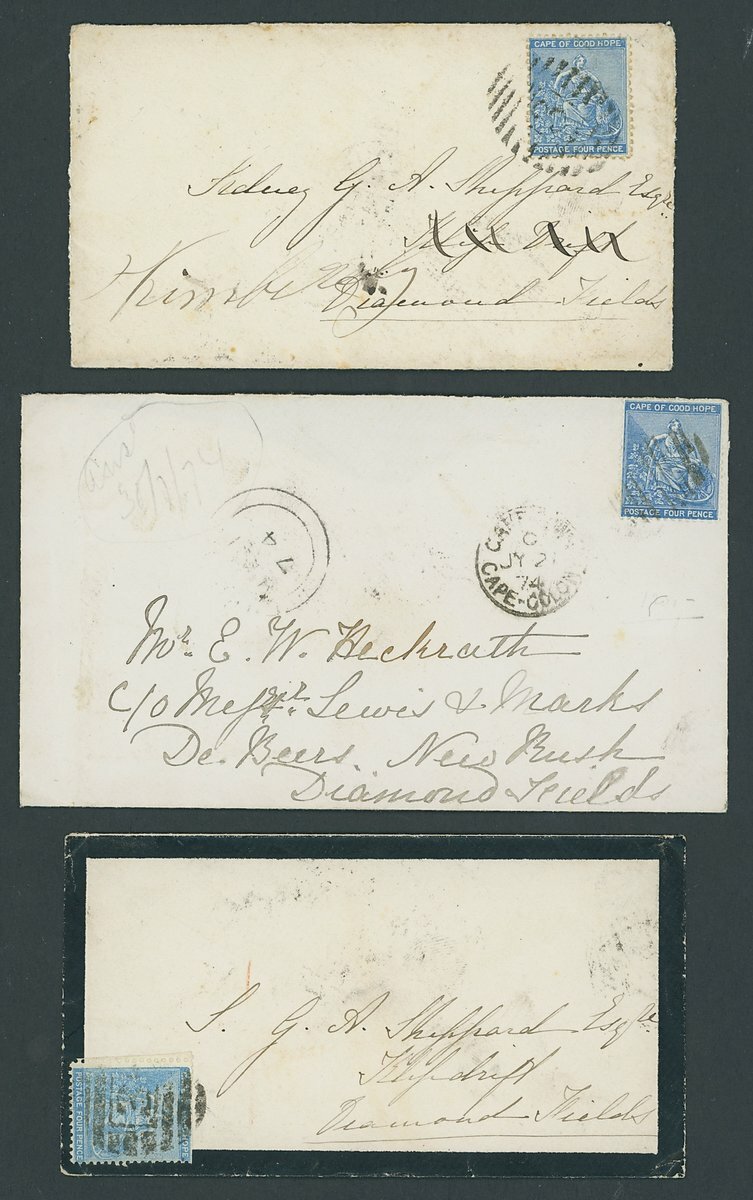 CAPE OF GOOD HOPE
POSTAGE FOUR PENCE
Sidney G. A. Sheppard Esqre
Klip Drift
Kimberley
Diamond Fields
CAPE OF GOOD HOPE
POSTAGE FOUR PENCE
ansd
74
CAPE-COLONY
JY 2
74
Mr. E. W. Heckrath
C/o Messrs. Lewis & Marks
De. Beers. New Rush
Diamond Fields
S. G. A. Sheppard Esqre
Klipdrift
Diamond Fields
POSTAGE FOUR PENCE